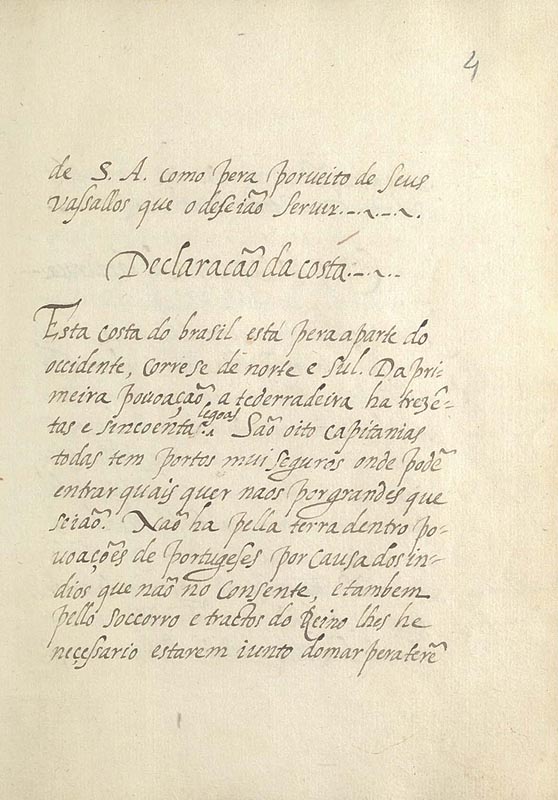 4
de S. A. como pera porveito de seus
vassallos que o deseião servir.
Declaração da costa.
Esta costa do brasil está pera a parte do
occidente, corre se de norte e sul. Da pri-
meira povoação a te derradeira ha trezẽ-
tas e sincoenta legoas. São oito capitanias
todas tem portos mui seguros onde podẽ
entrar quais quer naos por grandes que
seião. Não ha pella terra dentro po-
voações de portugeses por causa dos in-
dios que não no consente, e tambem
pello soccorro e tractos do Reino lhes he
necessario estarem iunto do mar pera terẽ